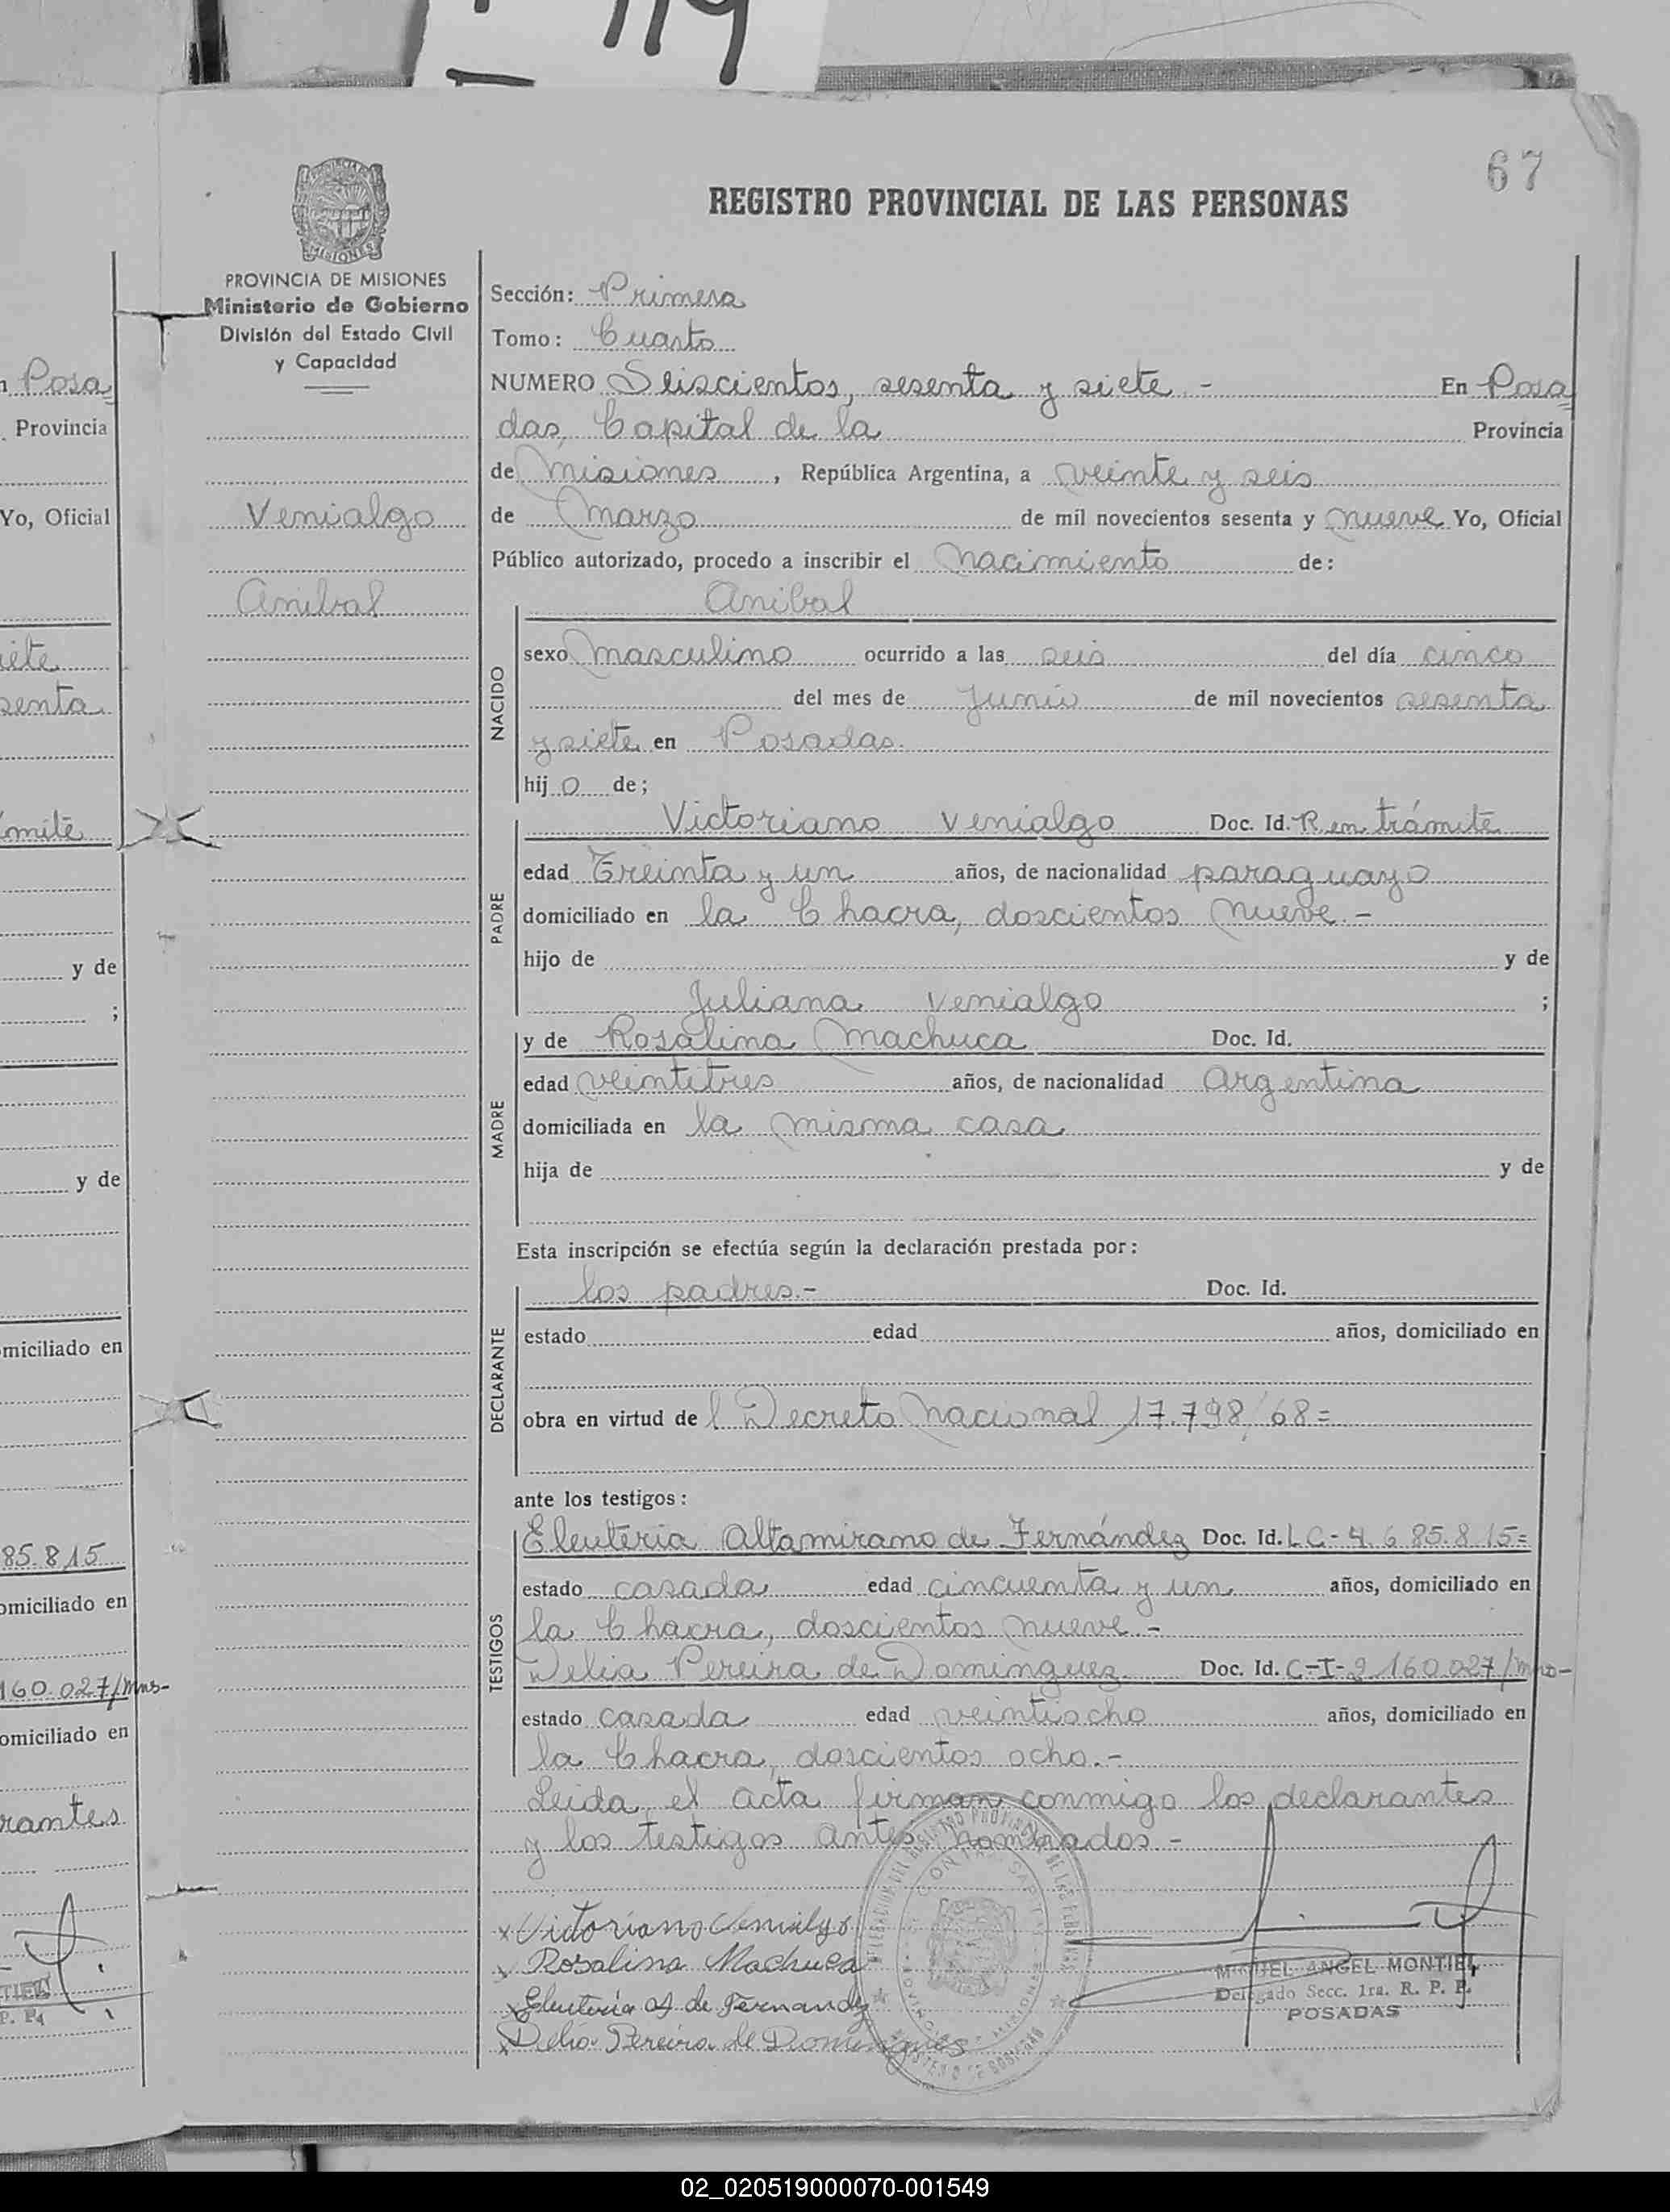 67
REGISTRO PROVINCIAL DE LAS PERSONAS
PROVINCIA DE MISIONES
Ministerio de Gobierno
División del Estado Civil
y Capacidad
Venialgo
Anibal
Sección: Primera
Tomo: Cuarto
NUMERO Seiscientos, sesenta y siete.- En Posa
das, Capital de la Provincia
de Misiones, República Argentina, a veinte y seis
de Marzo de mil novecientos sesenta y nueve Yo, Oficial
Público autorizado, procedo a inscribir el Nacimiento de:
Anibal
NACIDO
sexo Masculino ocurrido a las seis del día cinco
del mes de Junio de mil novecientos sesenta
y siete en Posadas.
hij o de;
PADRE
Victoriano Venialgo Doc. Id. R en trámite
edad Treinta y un años, de nacionalidad paraguayo
domiciliado en la Chacra, doscientos nueve.-
hijo de y de
Juliana Venialgo ;
MADRE
y de Rosalina Machuca Doc. Id.
edad veintitres años, de nacionalidad Argentina
domiciliada en la misma casa
hija de y de
Esta inscripción se efectúa según la declaración prestada por:
DECLARANTE
los padres.- Doc. Id.
estado edad años, domiciliado en
obra en virtud de l Decreto Nacional 17.798/68=
ante los testigos:
TESTIGOS
Eleuteria Altamirano de Fernández Doc. Id. LC-4.685.815=
estado casada edad cincuenta y un años, domiciliado en
la Chacra, doscientos nueve.-
Delia Pereira de Dominguez Doc. Id. C-I-2.160.027/mns-
estado casada edad veintiocho años, domiciliado en
la Chacra, doscientos ocho.-
Leida el acta firman conmigo los declarantes
y los testigos antes nombrados.-
x Victoriano Venialgo
x Rosalina Machuca
x Eleuteria A de Fernandez
x Delia Pereira de Domingues
MIGUEL ANGEL MONTIEL
Delegado Secc. 1ra. R. P. P.
POSADAS
Posa
Provincia
Yo, Oficial
iete
senta
mite
y de
;
y de
miciliado en
85.815
omiciliado en
160.027/mns-
omiciliado en
rantes
TIEL
P. P.
02_020519000070-001549